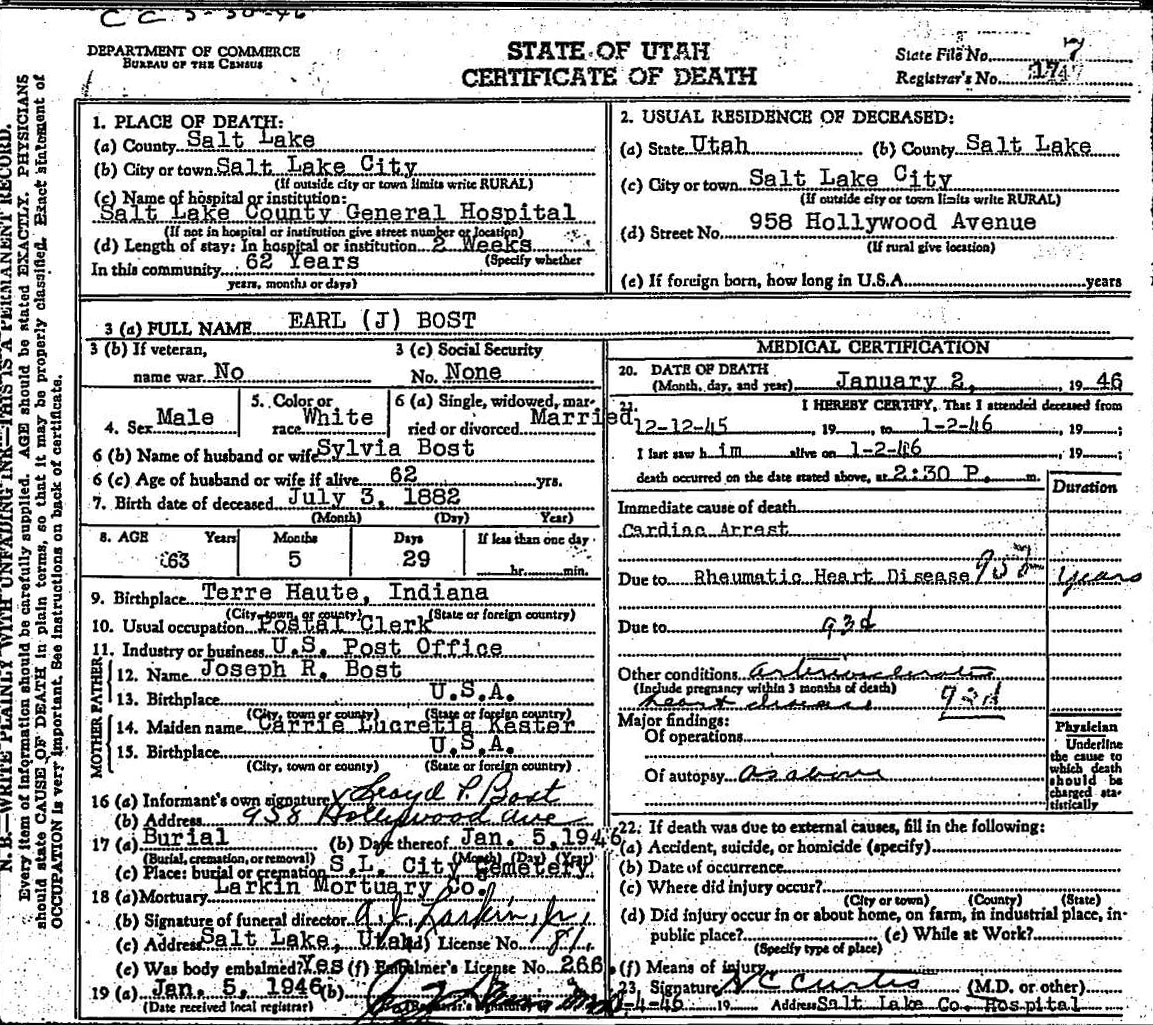 C C 5-30-46
DEPARTMENT OF COMMERCE
BUREAU OF THE CENSUS
STATE OF UTAH
CERTIFICATE OF DEATH
State File No. 7
Registrar's No.
N. B.—WRITE PLAINLY WITH UNFADING INK—THIS IS A PERMANENT RECORD.
Every item of information should be carefully supplied. AGE should be stated EXACTLY. PHYSICIANS
should state CAUSE OF DEATH in plain terms, so that it may be properly classified. Exact statement of
OCCUPATION is very important. See instructions on back of certificate.
1. PLACE OF DEATH:
(a) County Salt Lake
(b) City or town Salt Lake City
(If outside city or town limits write RURAL)
(c) Name of hospital or institution:
Salt Lake County General Hospital
(If not in hospital or institution give street number or location)
(d) Length of stay: In hospital or institution 2 Weeks
(Specify whether
In this community 62 Years
years, months or days)
2. USUAL RESIDENCE OF DECEASED:
(a) State Utah (b) County Salt Lake
(c) City or town Salt Lake City
(If outside city or town limits write RURAL)
(d) Street No. 958 Hollywood Avenue
(If rural give location)
(e) If foreign born, how long in U.S.A. years
3 (a) FULL NAME EARL (J) BOST
3 (b) If veteran, 3 (c) Social Security
name war No No. None
4. Sex Male 5. Color or race White 6 (a) Single, widowed, married or divorced Married
6 (b) Name of husband or wife Sylvia Bost
6 (c) Age of husband or wife if alive 62 yrs.
7. Birth date of deceased July 3, 1882
(Month) (Day) Year)
8. AGE Years Months Days If less than one day
63 5 29 hr. min.
9. Birthplace Terre Haute, Indiana
(City, town, or county) (State or foreign country)
10. Usual occupation Postal Clerk
11. Industry or business U.S. Post Office
FATHER
12. Name Joseph R. Bost
13. Birthplace U.S.A.
(City, town or county) (State or foreign country)
MOTHER
14. Maiden name Carrie Lucretia Kester
15. Birthplace U.S.A.
(City, town or county) (State or foreign country)
16 (a) Informant's own signature x Lloyd P. Bost
(b) Address 958 Hollywood Ave
17 (a) Burial (b) Date thereof Jan. 5, 1946
(Burial, cremation, or removal) (Month) (Day) (Year)
(c) Place: burial or cremation S.L. City Cemetery
18 (a) Mortuary Larkin Mortuary Co.
(b) Signature of funeral director A. J. Larkin, Jr.
(c) Address Salt Lake, Utah (d) License No. 81
(e) Was body embalmed? Yes (f) Embalmer's License No. 266
19 (a) Jan. 5, 1946 (b)
(Date received local registrar)
MEDICAL CERTIFICATION
20. DATE OF DEATH
(Month, day, and year) January 2, 19 46
21. I HEREBY CERTIFY, That I attended deceased from
12-12-45, 19 , to 1-2-46, 19 ;
I last saw him alive on 1-2-46, 19 ;
death occurred on the date stated above, at 2:30 P. m.
Duration
Immediate cause of death
Cardiac Arrest
Due to Rheumatic Heart Disease years
Due to 93d
Other conditions arteriosclerotic
(Include pregnancy within 3 months of death)
heart disease 93d
Major findings:
Of operations
Of autopsy as above
Physician
Underline
the cause to
which death
should be
charged sta-
tistically
22. If death was due to external causes, fill in the following:
(a) Accident, suicide, or homicide (specify)
(b) Date of occurrence
(c) Where did injury occur?
(City or town) (County) (State)
(d) Did injury occur in or about home, on farm, in industrial place, in-
public place? (e) While at Work?
(Specify type of place)
(f) Means of injury
23. Signature C Curtis (M.D. or other)
1-4-46 19 Address Salt Lake Co. Hospital